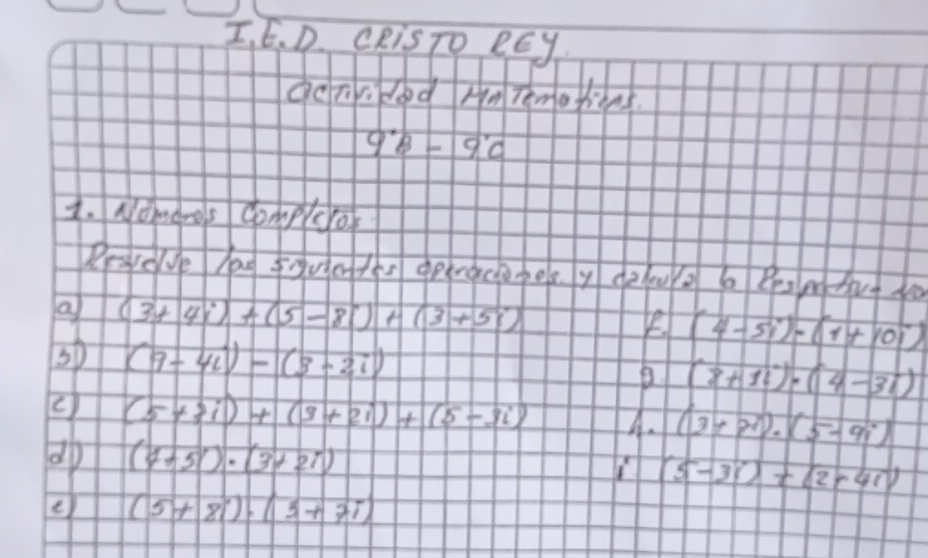 I.E.D. CRISTO REY.
Actividad Matematicas.
9°B - 9°C
1. Números Complejos
Resuelve las siguientes operaciones y calcula la
a) (3+4i) + (5-8i) + (3+5i)
b) (9-4i) - (3-2i)
c) (5+3i) + (3+2i) + (5-3i)
d) (4+5i) · (3+2i)
e) (5+8i) · (3+7i)
f. (4-5i) - (1+10i)
g. (4-3i)
h. (5-9i)
i. (5-3i) + (2+4i)